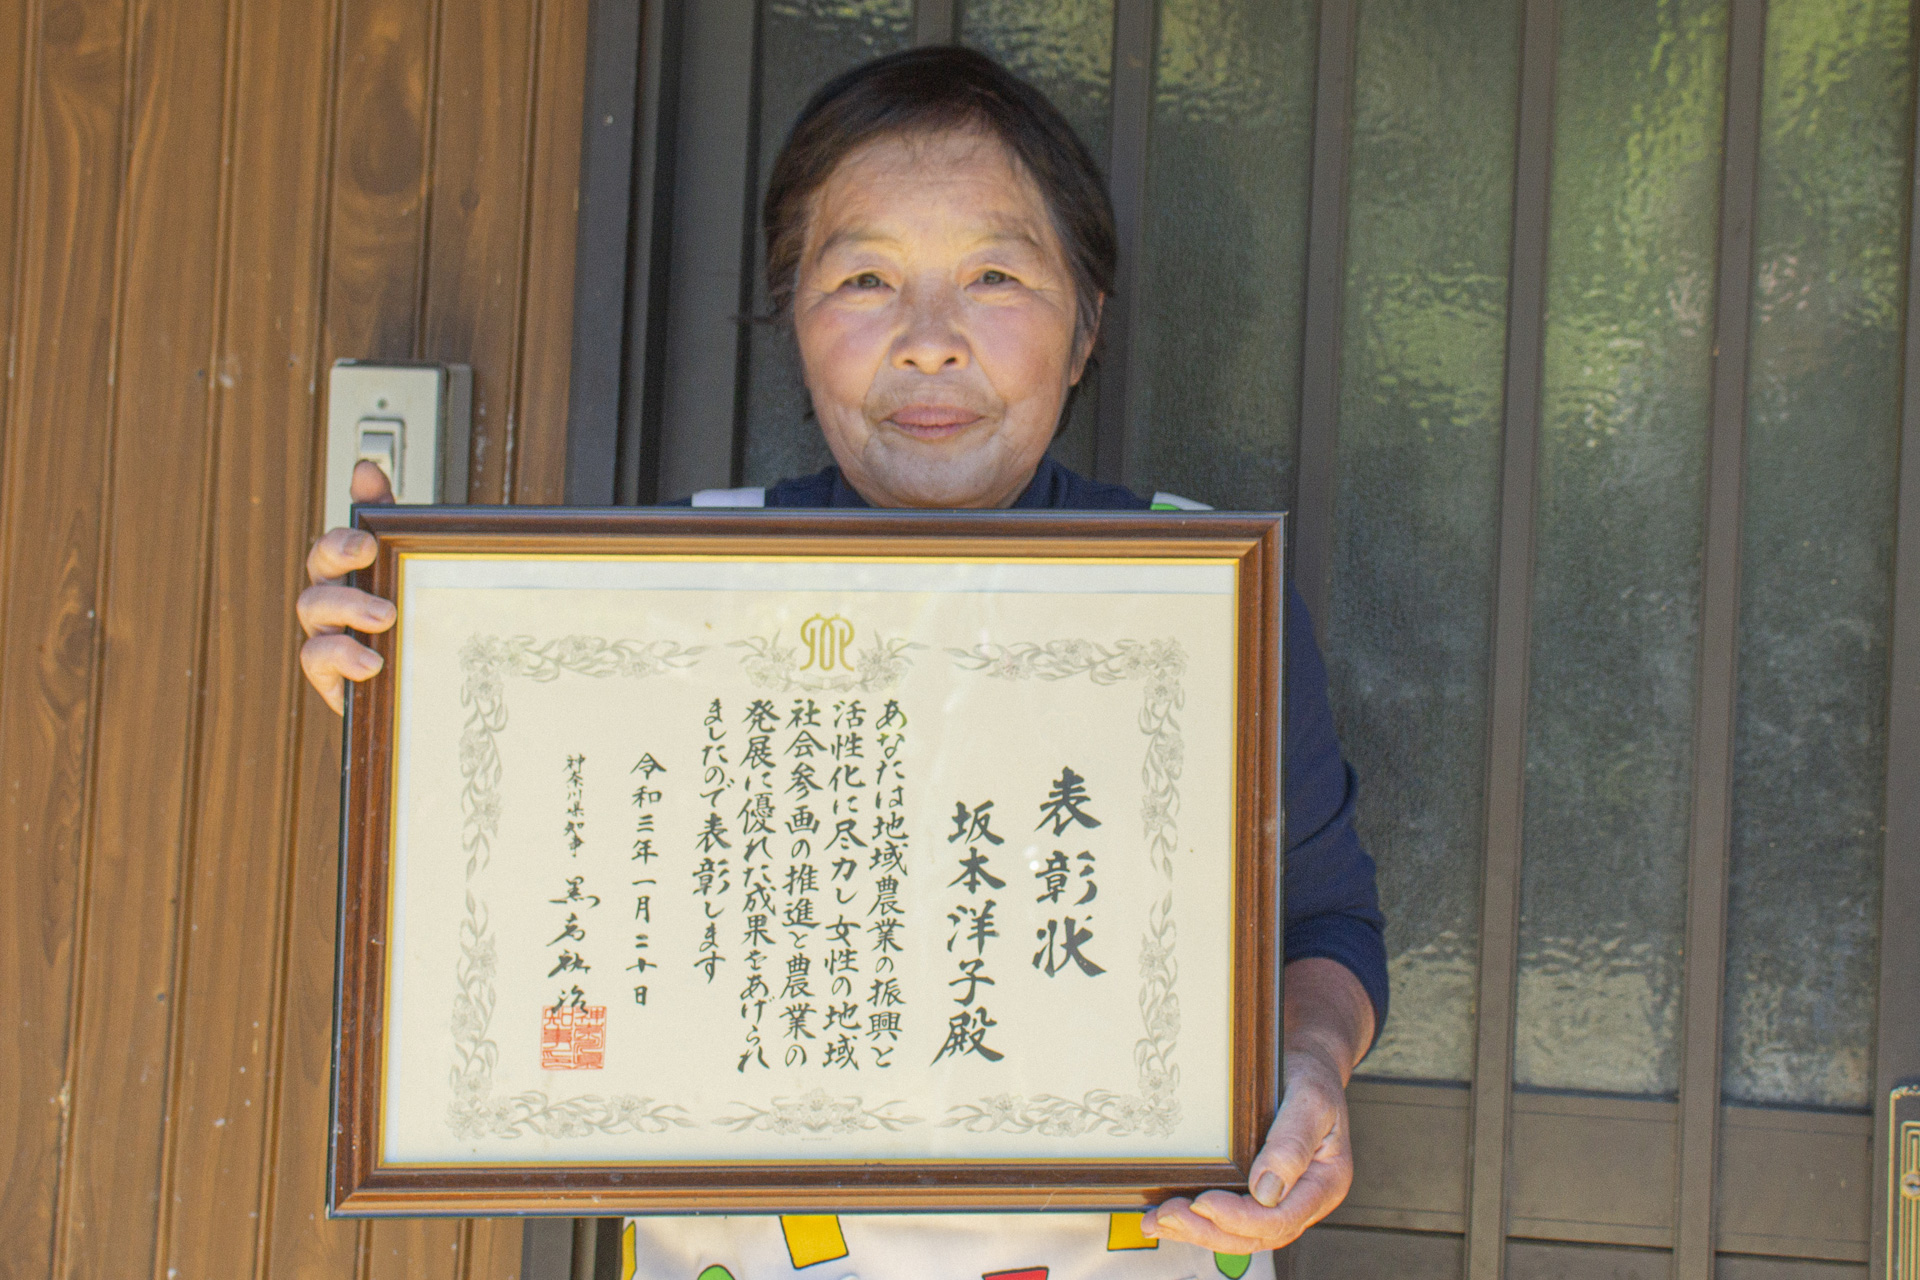 表彰状
坂本洋子殿
あなたは地域農業の振興と
活性化に尽力し女性の地域
社会参画の推進と農業の
発展に優れた成果をあげられ
ましたので表彰します
令和三年一月二十日
神奈川県知事 黒岩祐治